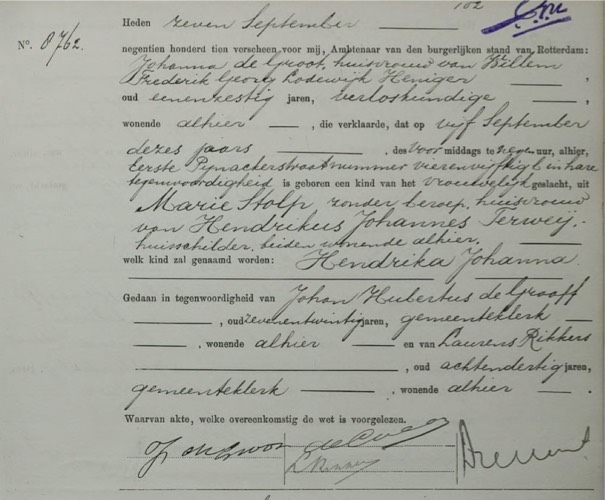 102
Heden zeven September
N°. 8762.
negentien honderd tien verscheen voor mij, Ambtenaar van den burgerlijken stand van Rotterdam:
Johanna de Groot, huisvrouw van Willem
Frederik Georg Lodewijk Heniger
oud eenenzestig jaren, verloskundige,
wonende alhier, die verklaarde, dat op vijf September
dezes jaars des voormiddags te negen uur, alhier,
Eerste Pijnackerstraat nummer vierenvijftig b in hare
tegenwoordigheid is geboren een kind van het vrouwelijk geslacht, uit
Marie Stolp zonder beroep, huisvrouw
van Hendrikus Johannes Terweij,
huisschilder, beiden wonende alhier,
welk kind zal genaamd worden: Hendrika Johanna.
Gedaan in tegenwoordigheid van Johan Hubertus de Grooff
, oud zevenentwintig jaren, gemeenteklerk
, wonende alhier en van Laurens Rikkers
, oud achtendertig jaren,
gemeenteklerk, wonende alhier.
Waarvan akte, welke overeenkomstig de wet is voorgelezen.